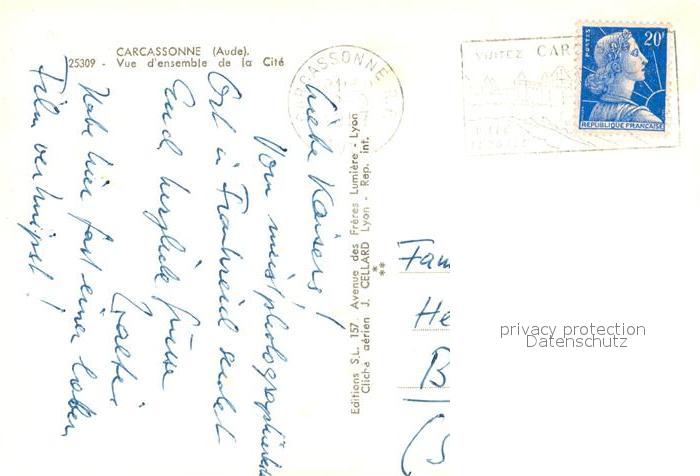 CARCASSONNE (Aude).
25309 - Vue d'ensemble de la Cité
Liebe Kaisers!
Vom meistphotographierten
Ort in Frankreich sendet
Euch herzliche Grüsse
Walter
Habe hier fast einen halben
Film verknipst!
Editions S.L. 157, Avenue des Frères Lumière - Lyon
Cliché aérien J. CELLARD Lyon - Rep. int.
*
**
CARCASSONNE
VISITEZ CAR
SA CITÉ
POSTES
20F
REPUBLIQUE FRANÇAISE
Fam
He
B
privacy protection
Datenschutz